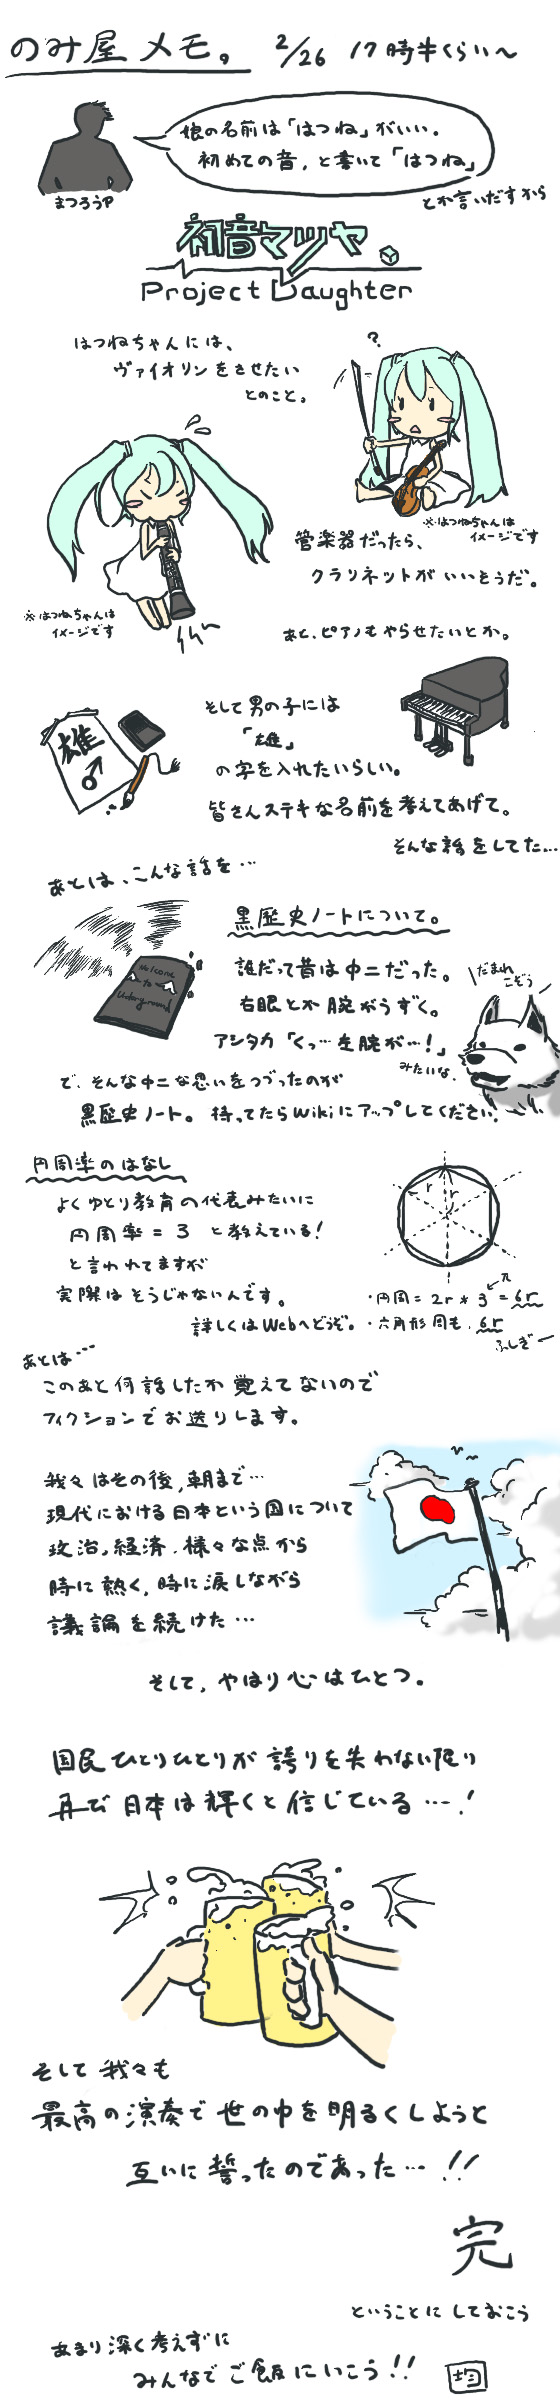 のみ屋メモ。 2/26 17時半くらい〜
娘の名前は「はつね」がいい。
初めての音、と書いて「はつね」
まつろうP
とか言いだすから
初音マツヤ。
Project Daughter
はつねちゃんには、
ヴァイオリンをさせたい
とのこと。
?
※はつねちゃんは
イメージです
管楽器だったら、
クラリネットがいいそうだ。
※はつねちゃんは
イメージです
あと、ピアノもやらせたいとか。
そして男の子には
「雄」
の字を入れたいらしい。
雄
♂
皆さんステキな名前を考えてあげて。
そんな話をしてた…
あとは、こんな話を…
黒歴史ノートについて。
Welcome
to
Underground
誰だって昔は中二だった。
右眼とか腕がうずく。
アシタカ「くっ…左腕が…!」
みたいな。
だまれ
こぞう
で、そんな中二な思いをつづったのが
黒歴史ノート。持ってたらWikiにアップしてください。
円周率のはなし
よくゆとり教育の代表みたいに
円周率=3 と教えている!
と言われてますが
実際はそうじゃないんです。
詳しくはWebへどうぞ。
r
r
π
・円周=2r*3=6r
・六角形周も、6r
ふしぎ
あとは…
このあと何話したか覚えてないので
フィクションでお送りします。
我々はその後、朝まで…
現代における日本という国について
政治、経済、様々な点から
時に熱く、時に涙しながら
議論を続けた…
そして、やはり心はひとつ。
国民ひとりひとりが誇りを失わない限り
再び日本は輝くと信じている…!
そして我々も
最高の演奏で世の中を明るくしようと
互いに誓ったのであった…!!
完
ということにしておこう
あまり深く考えずに
みんなでご飯にいこう!!